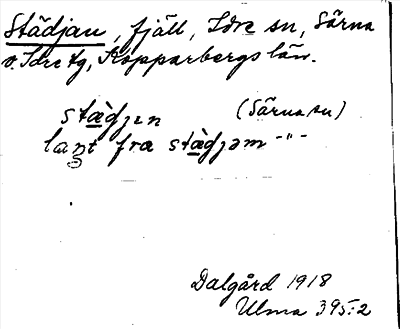 Städjan, fjäll, Idre sn, Särna
o. Idre tg, Kopparbergs län.
stæ̀djen (Särna sn)
laŋt fra stæ̀djəm -"-
Dalgård 1918
Ulma 395:2